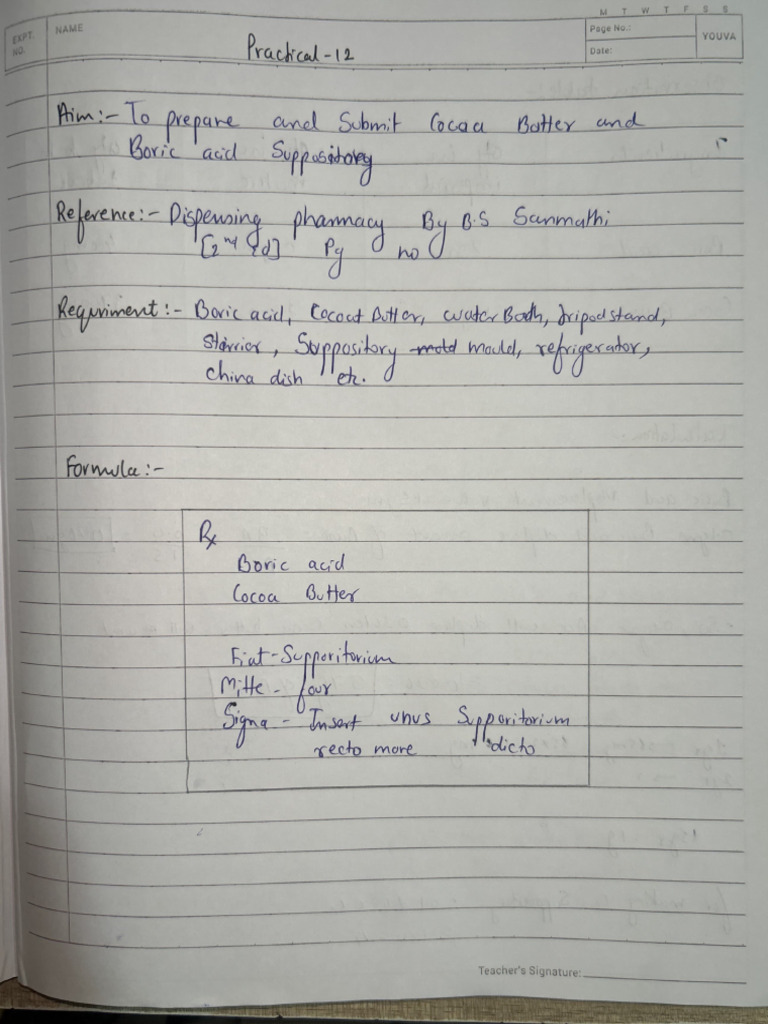 M T W T F S S
EXPT. NO.
NAME
Page No.:
YOUVA
Date:
Practical-12
Aim:- To prepare and Submit Cocoa Botter and
Boric acid Suppository
Reference:- Dispensing pharmacy By B.S Sanmathi
[2nd Ed] Pg no
Requriment:- Boric acid, Cocout Butter, water Bath, tripod stand,
Suppository mould, refrigerator,
china dish etc.
Formula:-
Rx
Boric acid
Cocoa Butter
Fiat-Supporitorium
Mitte - four
Signa - Insert unus Supporitorium
recto more dicto
Teacher's Signature: